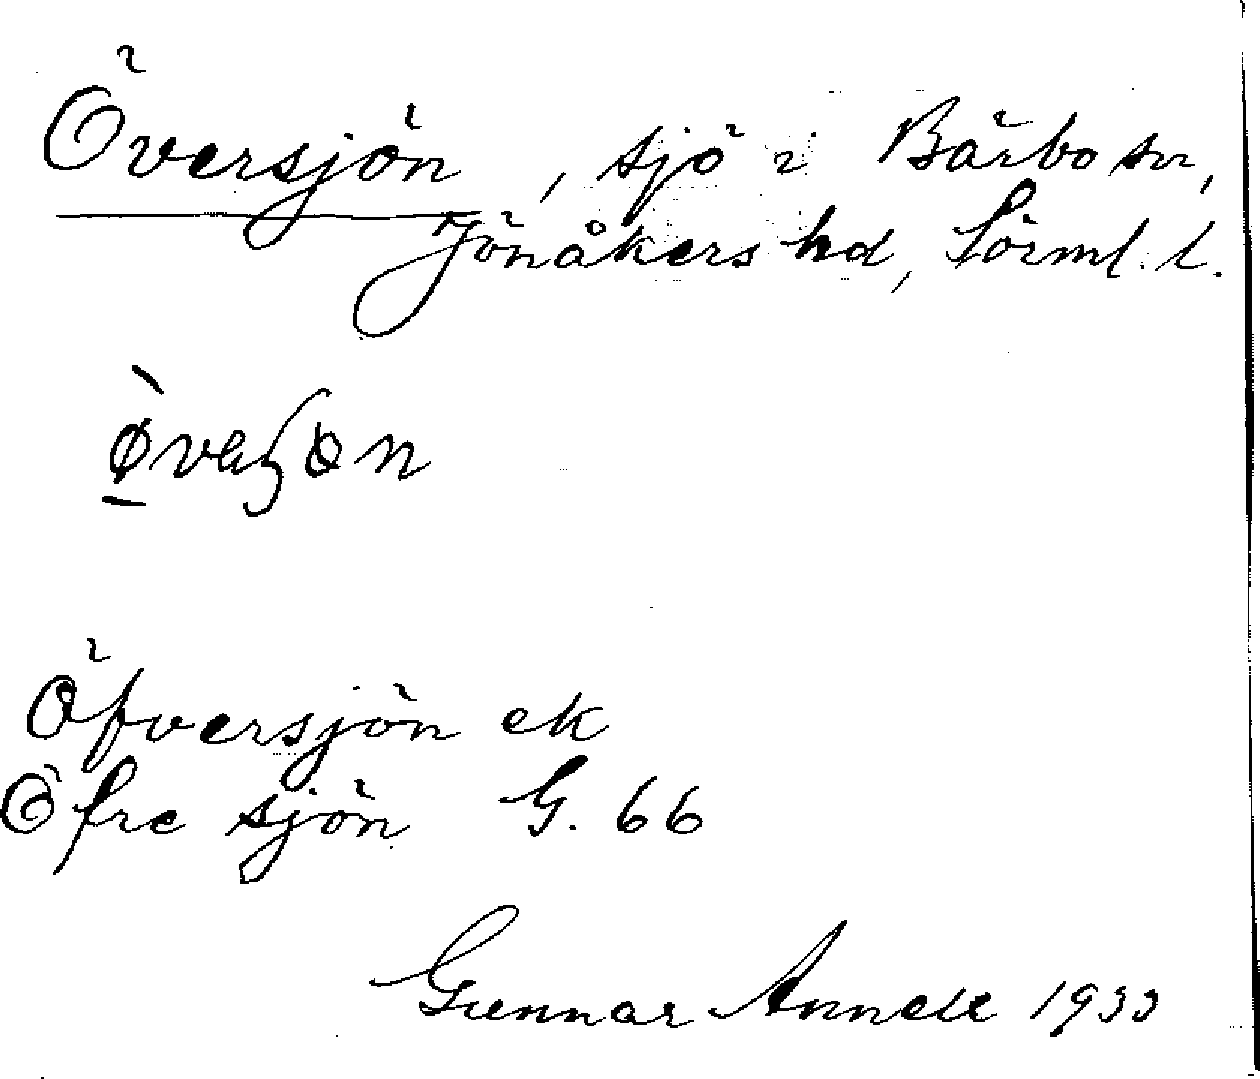 Översjön, sjö i Bärbo sn,
Jönåkers hd, Sörml. l.
Öfversjön ek
Öfre sjön G. 66
Gunnar Annell 1933